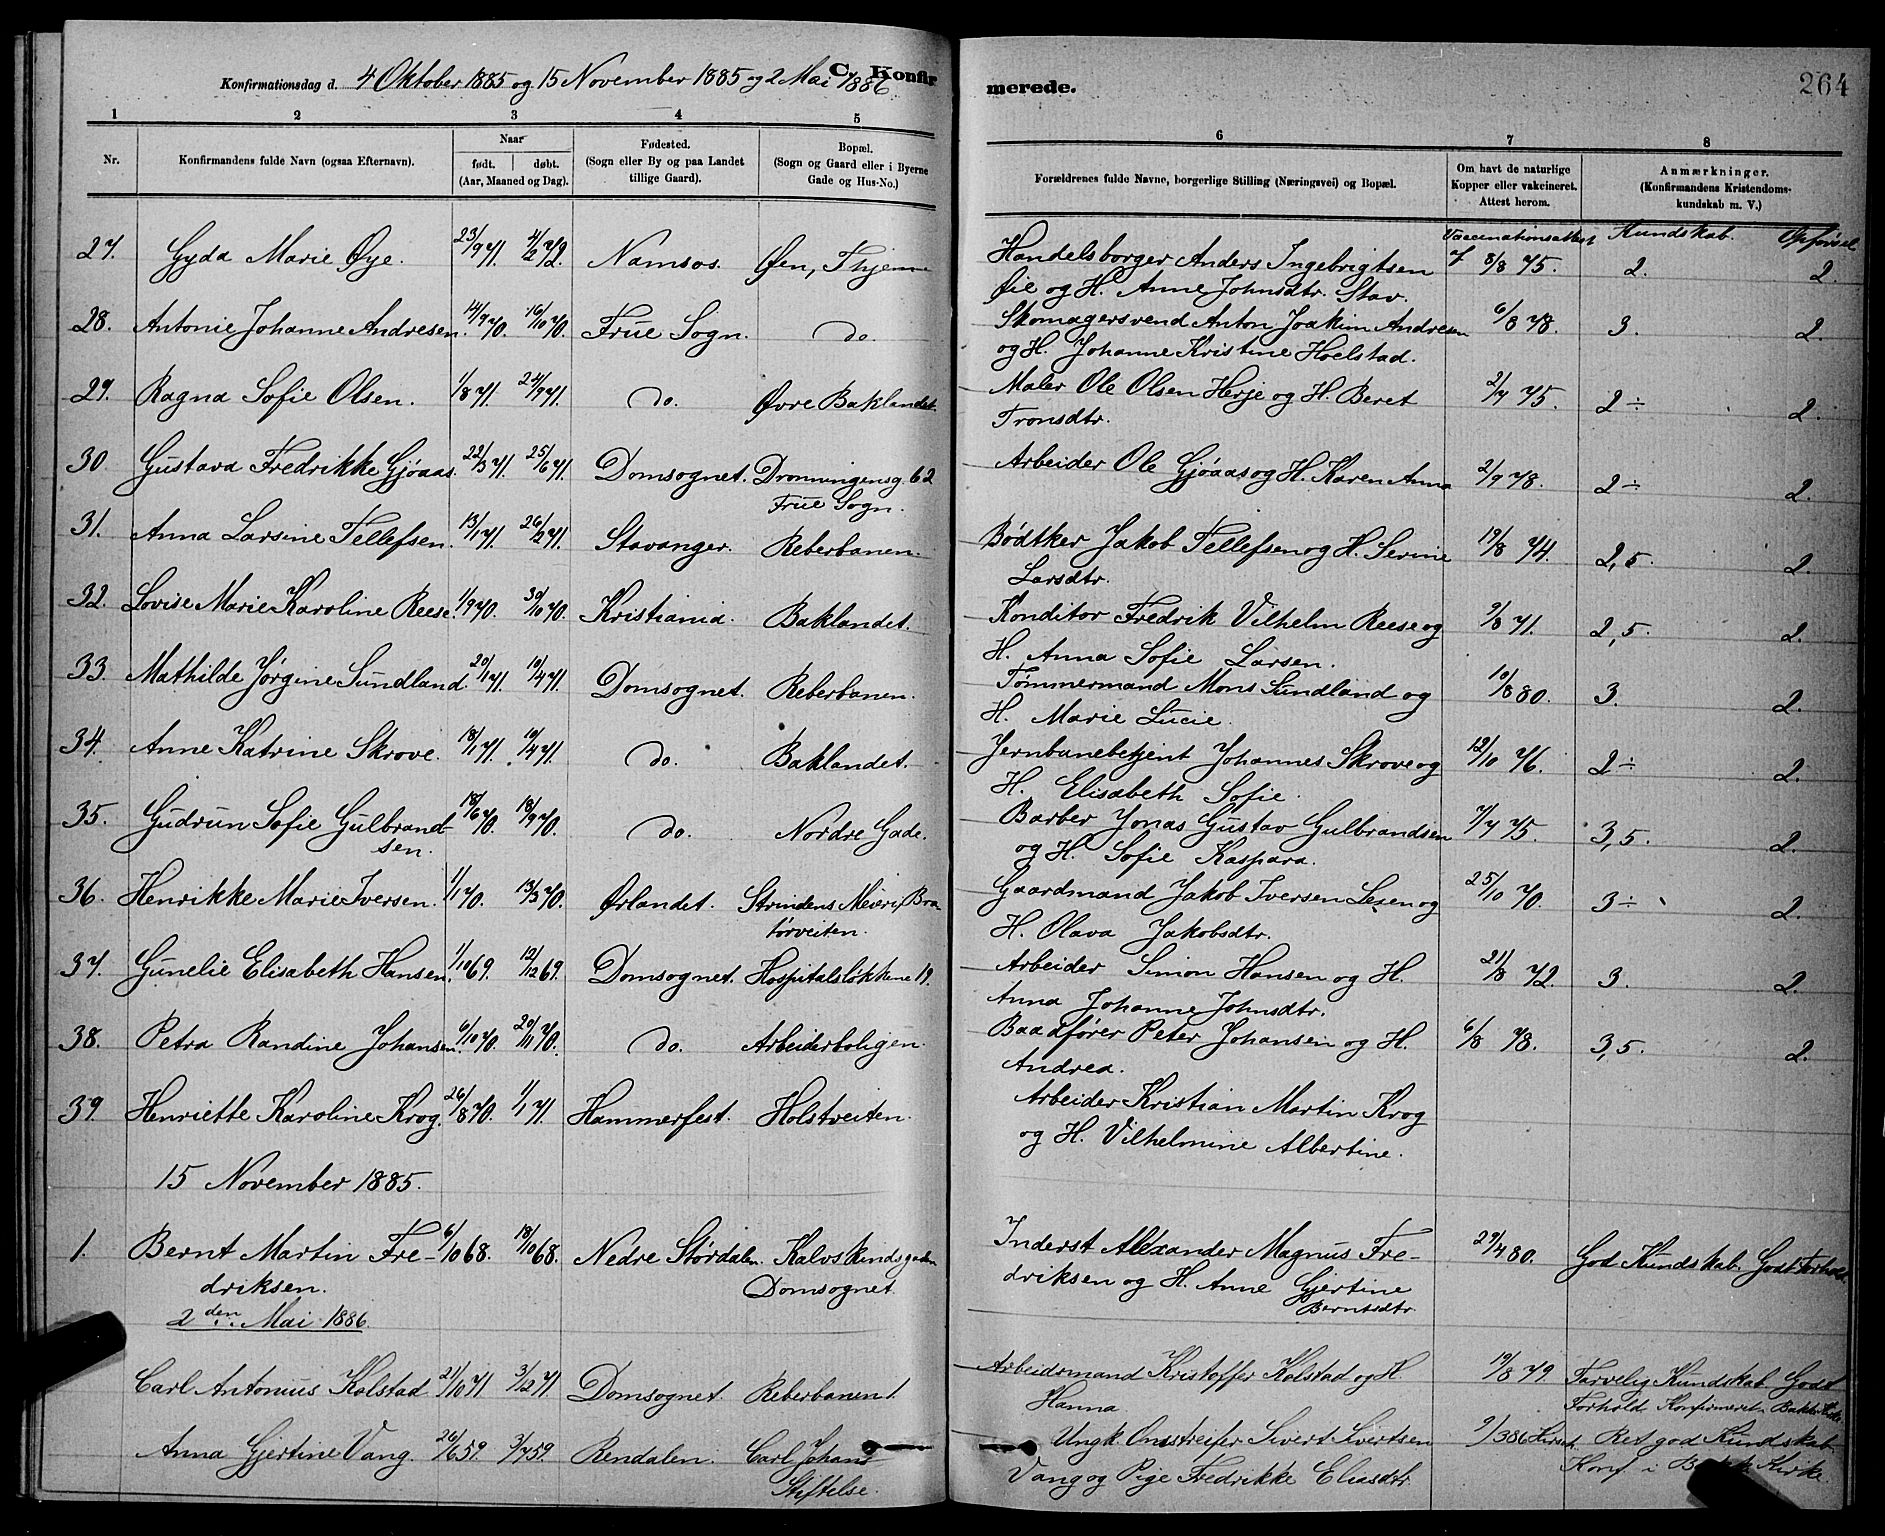 Konfirmationsdag d. 4 Oktober 1885 og 15 November 1885 og 2 Mai 1886 C. Konfir
merede. 264
1 2 3 4 5 6 7 8
Nr. Konfirmandens fulde Navn (ogsaa Efternavn). Naar født. døbt. (Aar, Maaned og Dag). Fødested. (Sogn eller By og paa Landet tillige Gaard). Bopæl. (Sogn og Gaard eller i Byerne Gade og Hus-No.) Forældrenes fulde Navne, borgerlige Stilling (Næringsvei) og Bopæl. Om havt de naturlige Kopper eller vakcineret. Attest herom. Anmærkninger. (Konfirmandens Kristendoms-kundskab m. V.)
Vaccinationsattest Kundskab. Opførsel
27. Gyda Marie Øye. 23/9 71. 4/2 72. Namsos. Øen, Fhjemme Handelsborger Anders Ingebrigtsen 8/8 75. 2. 2.
Øie og H. Anne Johnsdtr. Stav.
28. Antonie Johanne Andresen. 14/9 70. 16/10 70. Frue Sogn. do. Skomagersvend Anton Joakim Andresen 6/8 78. 3. 2.
og H. Johanne Kristine Hoelstad.
29. Ragna Sofie Olsen. 1/8 71. 24/9 71. do. Øvre Baklandet. Maler Ole Olsen Herje og H. Beret 2/7 75. 2÷ 2.
Tronsdtr.
30 Gustava Fredrikke Gjøaas. 22/3 71. 25/6 71. Domsognet. Dronningensg. 62 Arbeider Ole Gjøaas og H. Karen Anna 2/9 78. 2÷ 2.
Frue Sogn.
31. Anna Larsine Tellefsen. 13/1 71. 26/2 71. Stavanger. Reberbanen. Bødtker Jakob Tellefsen og H. Serine 19/8 74. 2,5. 2.
Larsdtr.
32. Lovise Marie Karoline Reese. 1/9 70. 30/10 70. Kristiania. Baklandet. Konditor Fredrik Vilhelm Reese og 9/8 71. 2,5. 2.
H. Anna Sofie Larsen.
33. Mathilde Jørgine Sundland. 20/1 71. 10/4 71. Domsognet. Reberbanen. Tømmermand Mons Sundland og 10/8 80. 3. 2.
H. Marie Lucie.
34. Anne Katrine Skrove. 18/1 71. 19/4 71. do. Baklandet. Jernbanebetjent Johannes Skrove og 12/10 76. 2÷ 2.
H. Elisabeth Sofie.
35. Gudrun Sofie Gulbrand- 18/6 70. 18/9 70. do. Nordre Gade. Barber Jonas Gustav Gulbrandsen 7/7 75. 3,5. 2.
sen. og H. Sofie Kaspara.
36. Henrikke Marie Iversen. 1/1 70. 13/3 70. Ørlandet. Strindens Meieri, Bra Gaardmand Jakob Iversen Lesen og 25/10 70. 3÷ 2.
tørveiten. H. Olava Jakobsdtr.
37. Gunelie Elisabeth Hansen. 1/10 69. 12/12 69. Domsognet. Hospitalsløkkene 19. Arbeider Simon Hansen og H. 21/8 72. 3. 2.
Anna Johanne Johnsdtr.
38. Petra Randine Johansen. 6/10 70. 20/11 70. do. Arbeiderboligen. Baadfører Peter Johansen og H. 6/8 78. 3,5. 2.
Andrea.
39. Henriette Karoline Krog. 26/8 70. 1/1 71. Hammerfest. Holstveiten. Arbeider Kristian Martin Krog
og H. Vilhelmine Albertine.
15 November 1885.
1. Bernt Martin Fre- 6/10 68. 18/10 68. Nedre Størdalen. Kalvskindsgaden Inderst Alexander Magnus Fre- 29/4 80. God Kundskab. Godt Forhold.
driksen. Domsognet driksen og H. Anne Gjertine
Berntsdtr.
2den Mai 1886.
Carl Antonius Kolstad 21/10 71 3/12 71 Domsognet. Reberbanen 1. Arbeidsmand Kristoffer Kolstad og H. 19/8 79. Tarvelig Kundskab Godt
Hanna. Forhold. Konfirmeret i Bakke Kirke
Anna Gjertine Vang. 26/6 59. 3/7 59. Rendalen. Carl Johans Ungk. Onsstreifer Sivert Sivertsen 9/3 86 Hirsch. Ret god Kundskab.
Stiftelse. Vang og Pige Fredrikke Eliasdtr. Konf i Kirke.